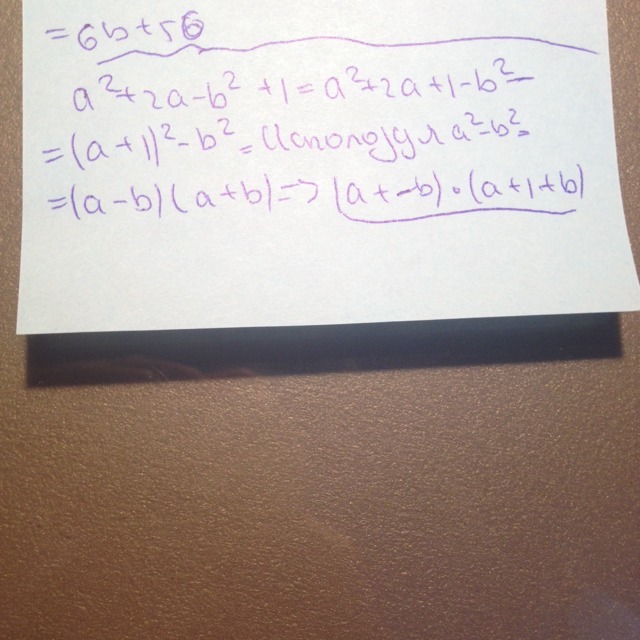 = 6b+56
a²+2a-b²+1=a²+2a+1-b²-
=(a+1)²-b²= Используя a²-b²=
=(a-b)(a+b)=> (a+-b)·(a+1+b)